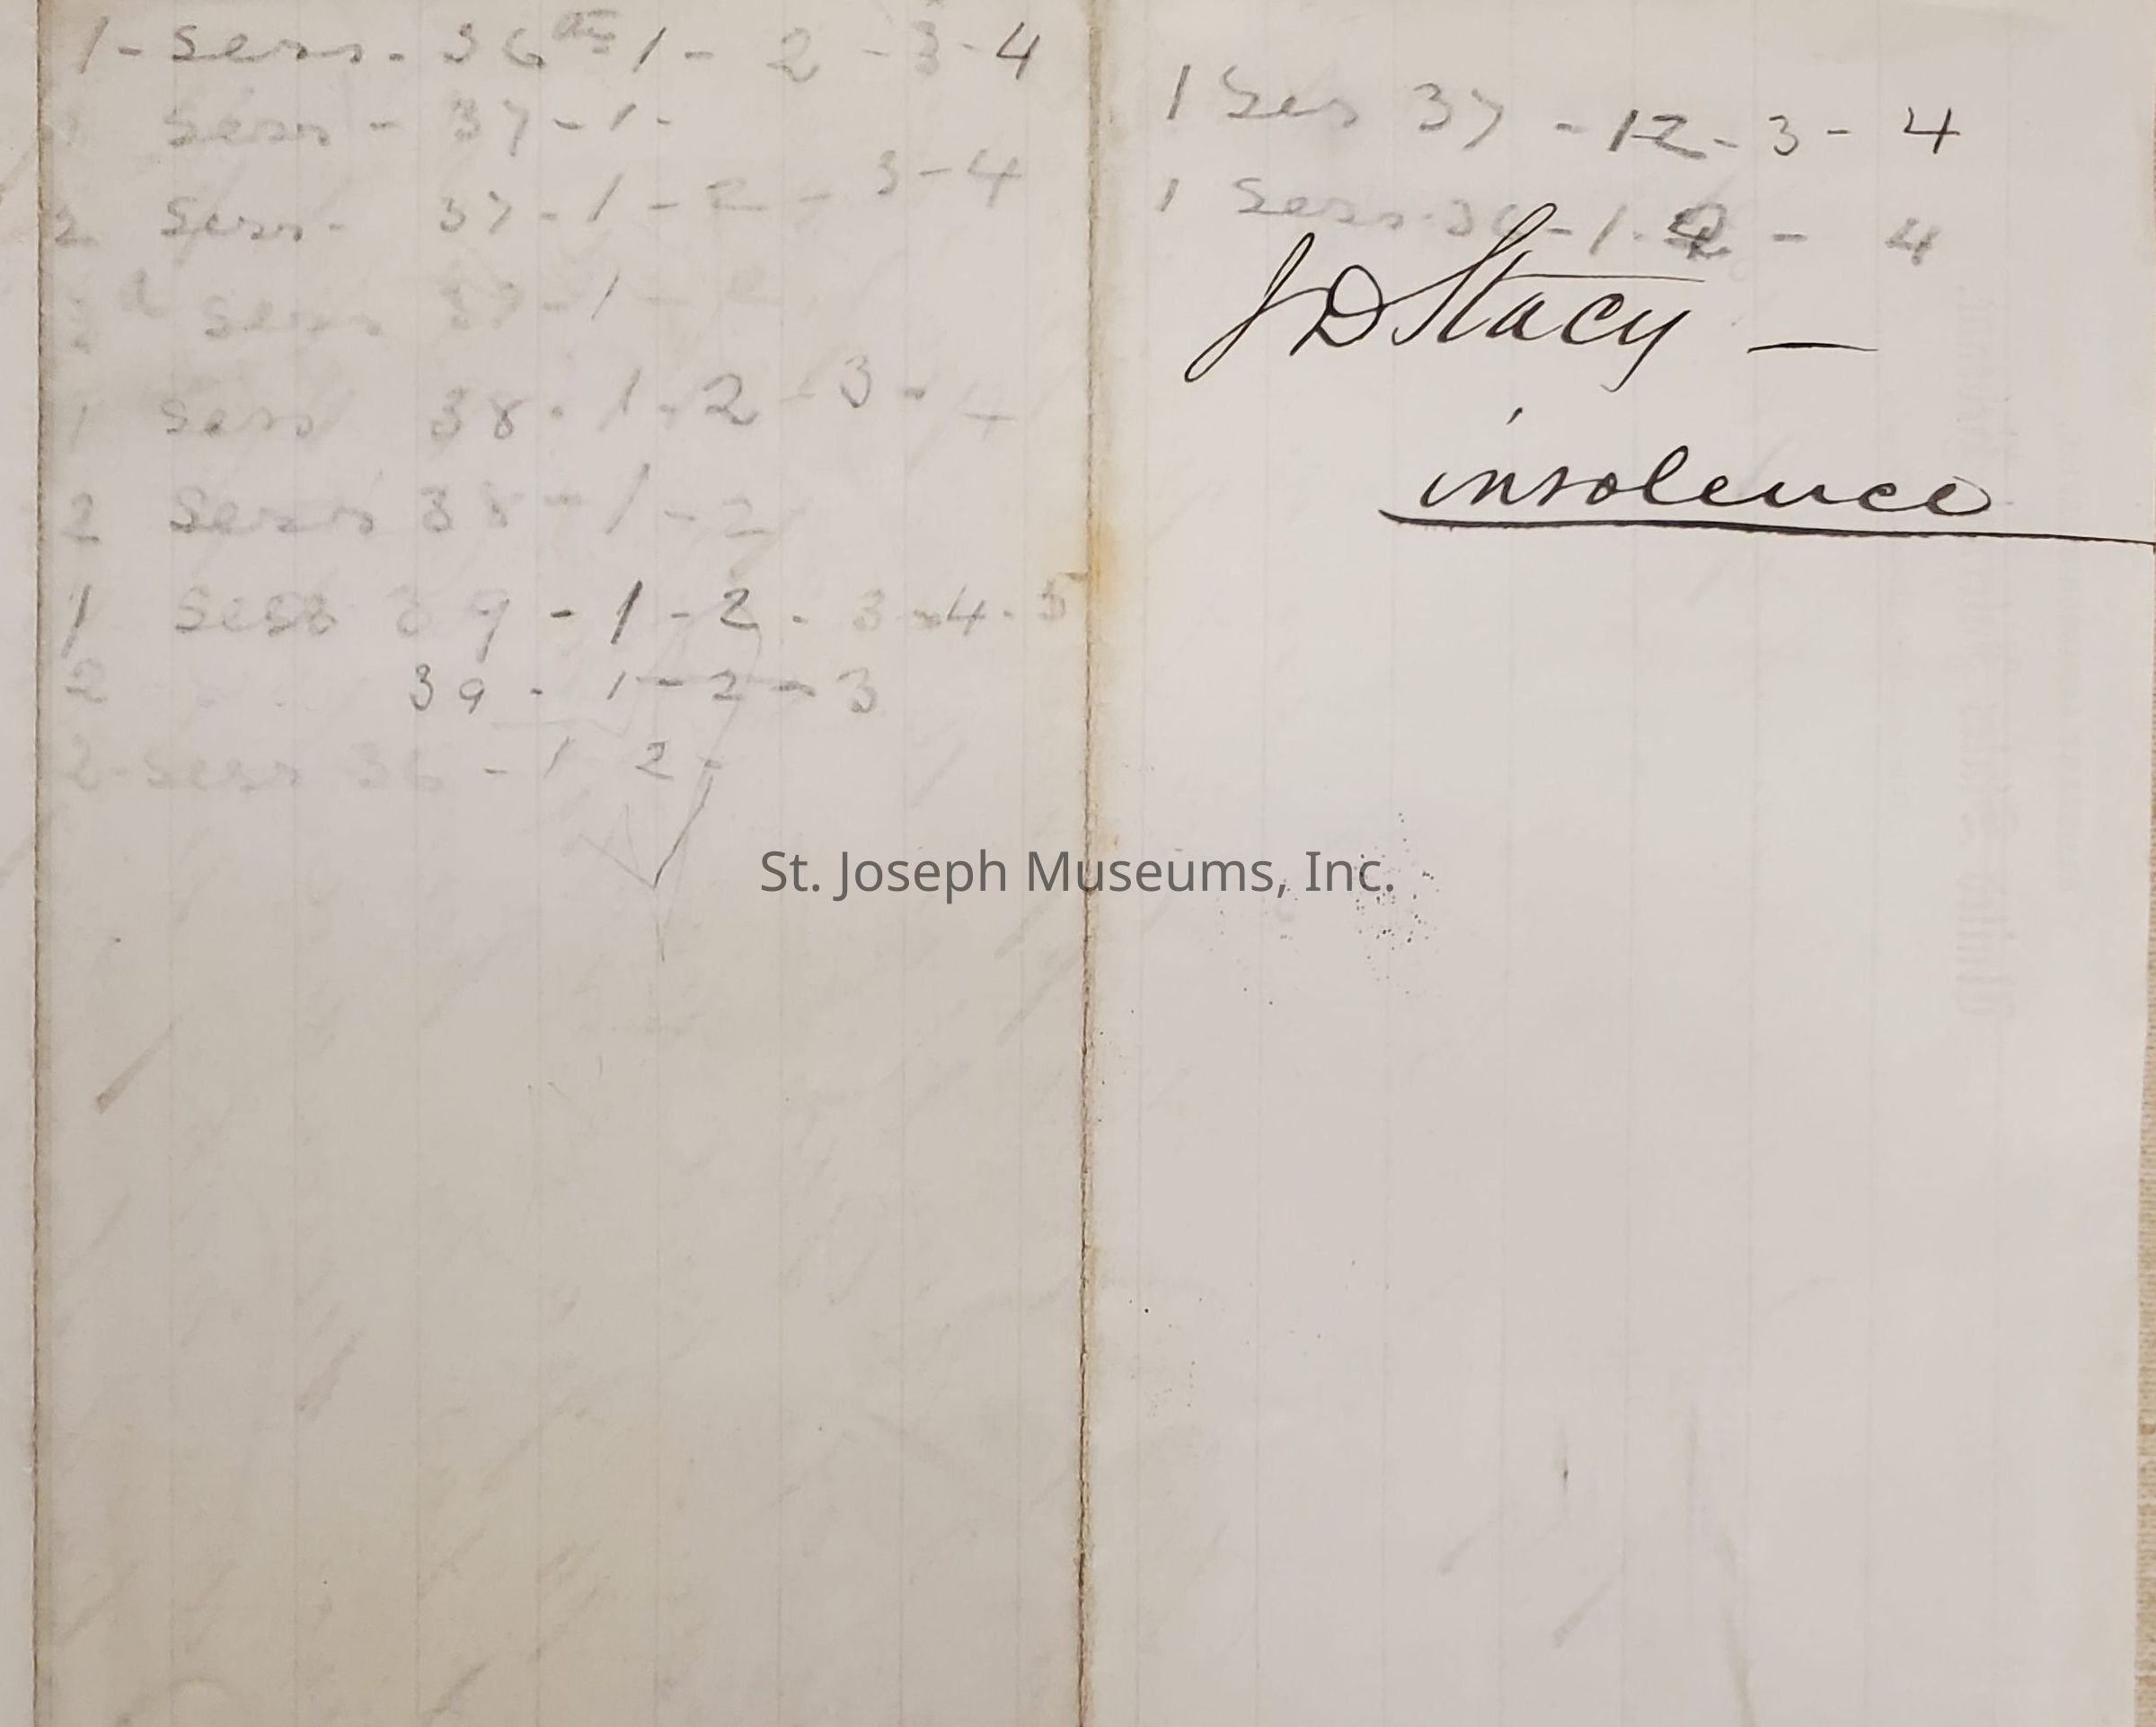 1 - Sess - 36th 1 - 2 - 3 - 4
Sess - 37 - 1 -
2 Sess - 37 - 1 - 2 - 3 - 4
3d Sess 37 - 1 - 2
1 Sess 38 - 1 - 2 - 3 - 4
2 Sess 38 - 1 - 2
1 Sess 39 - 1 - 2 - 3 - 4 - 5
2 39 - 1 - 2 - 3
2 - Sess 36 - 1 2 -
1 Ses 37 - 12 - 3 - 4
1 Sess 36 - 1 - 2 - 4
J D Stacy —
insolence
St. Joseph Museums, Inc.